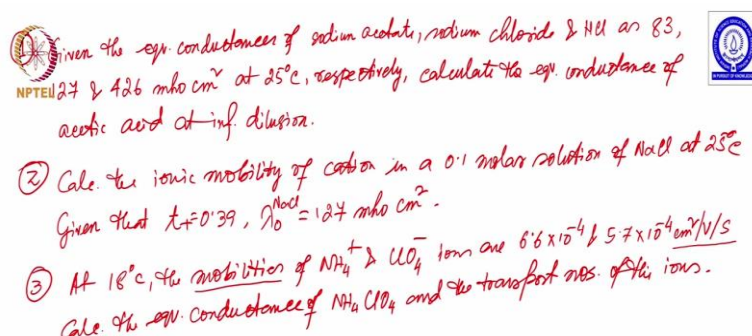 ① Given the eqv. conductances of sodium acetate, sodium chloride & HCl as 83,
NPTEL 127 & 426 mho cm² at 25°c, respectively, calculate the eqv. conductance of
acetic acid at inf. dilusion.
② Calc. the ionic mobility of cation in a 0.1 molar solution of NaCl at 25°c
Given that t₊=0.39, λ₀ᴺᵃᶜˡ = 127 mho cm².
③ At 18°c, the mobilities of NH₄⁺ & ClO₄⁻ ions are 6.6x10⁻⁴ & 5.7x10⁻⁴ cm²/V/S
Calc. the eqv. conductance of NH₄ClO₄ and the transport nos. of the ions.